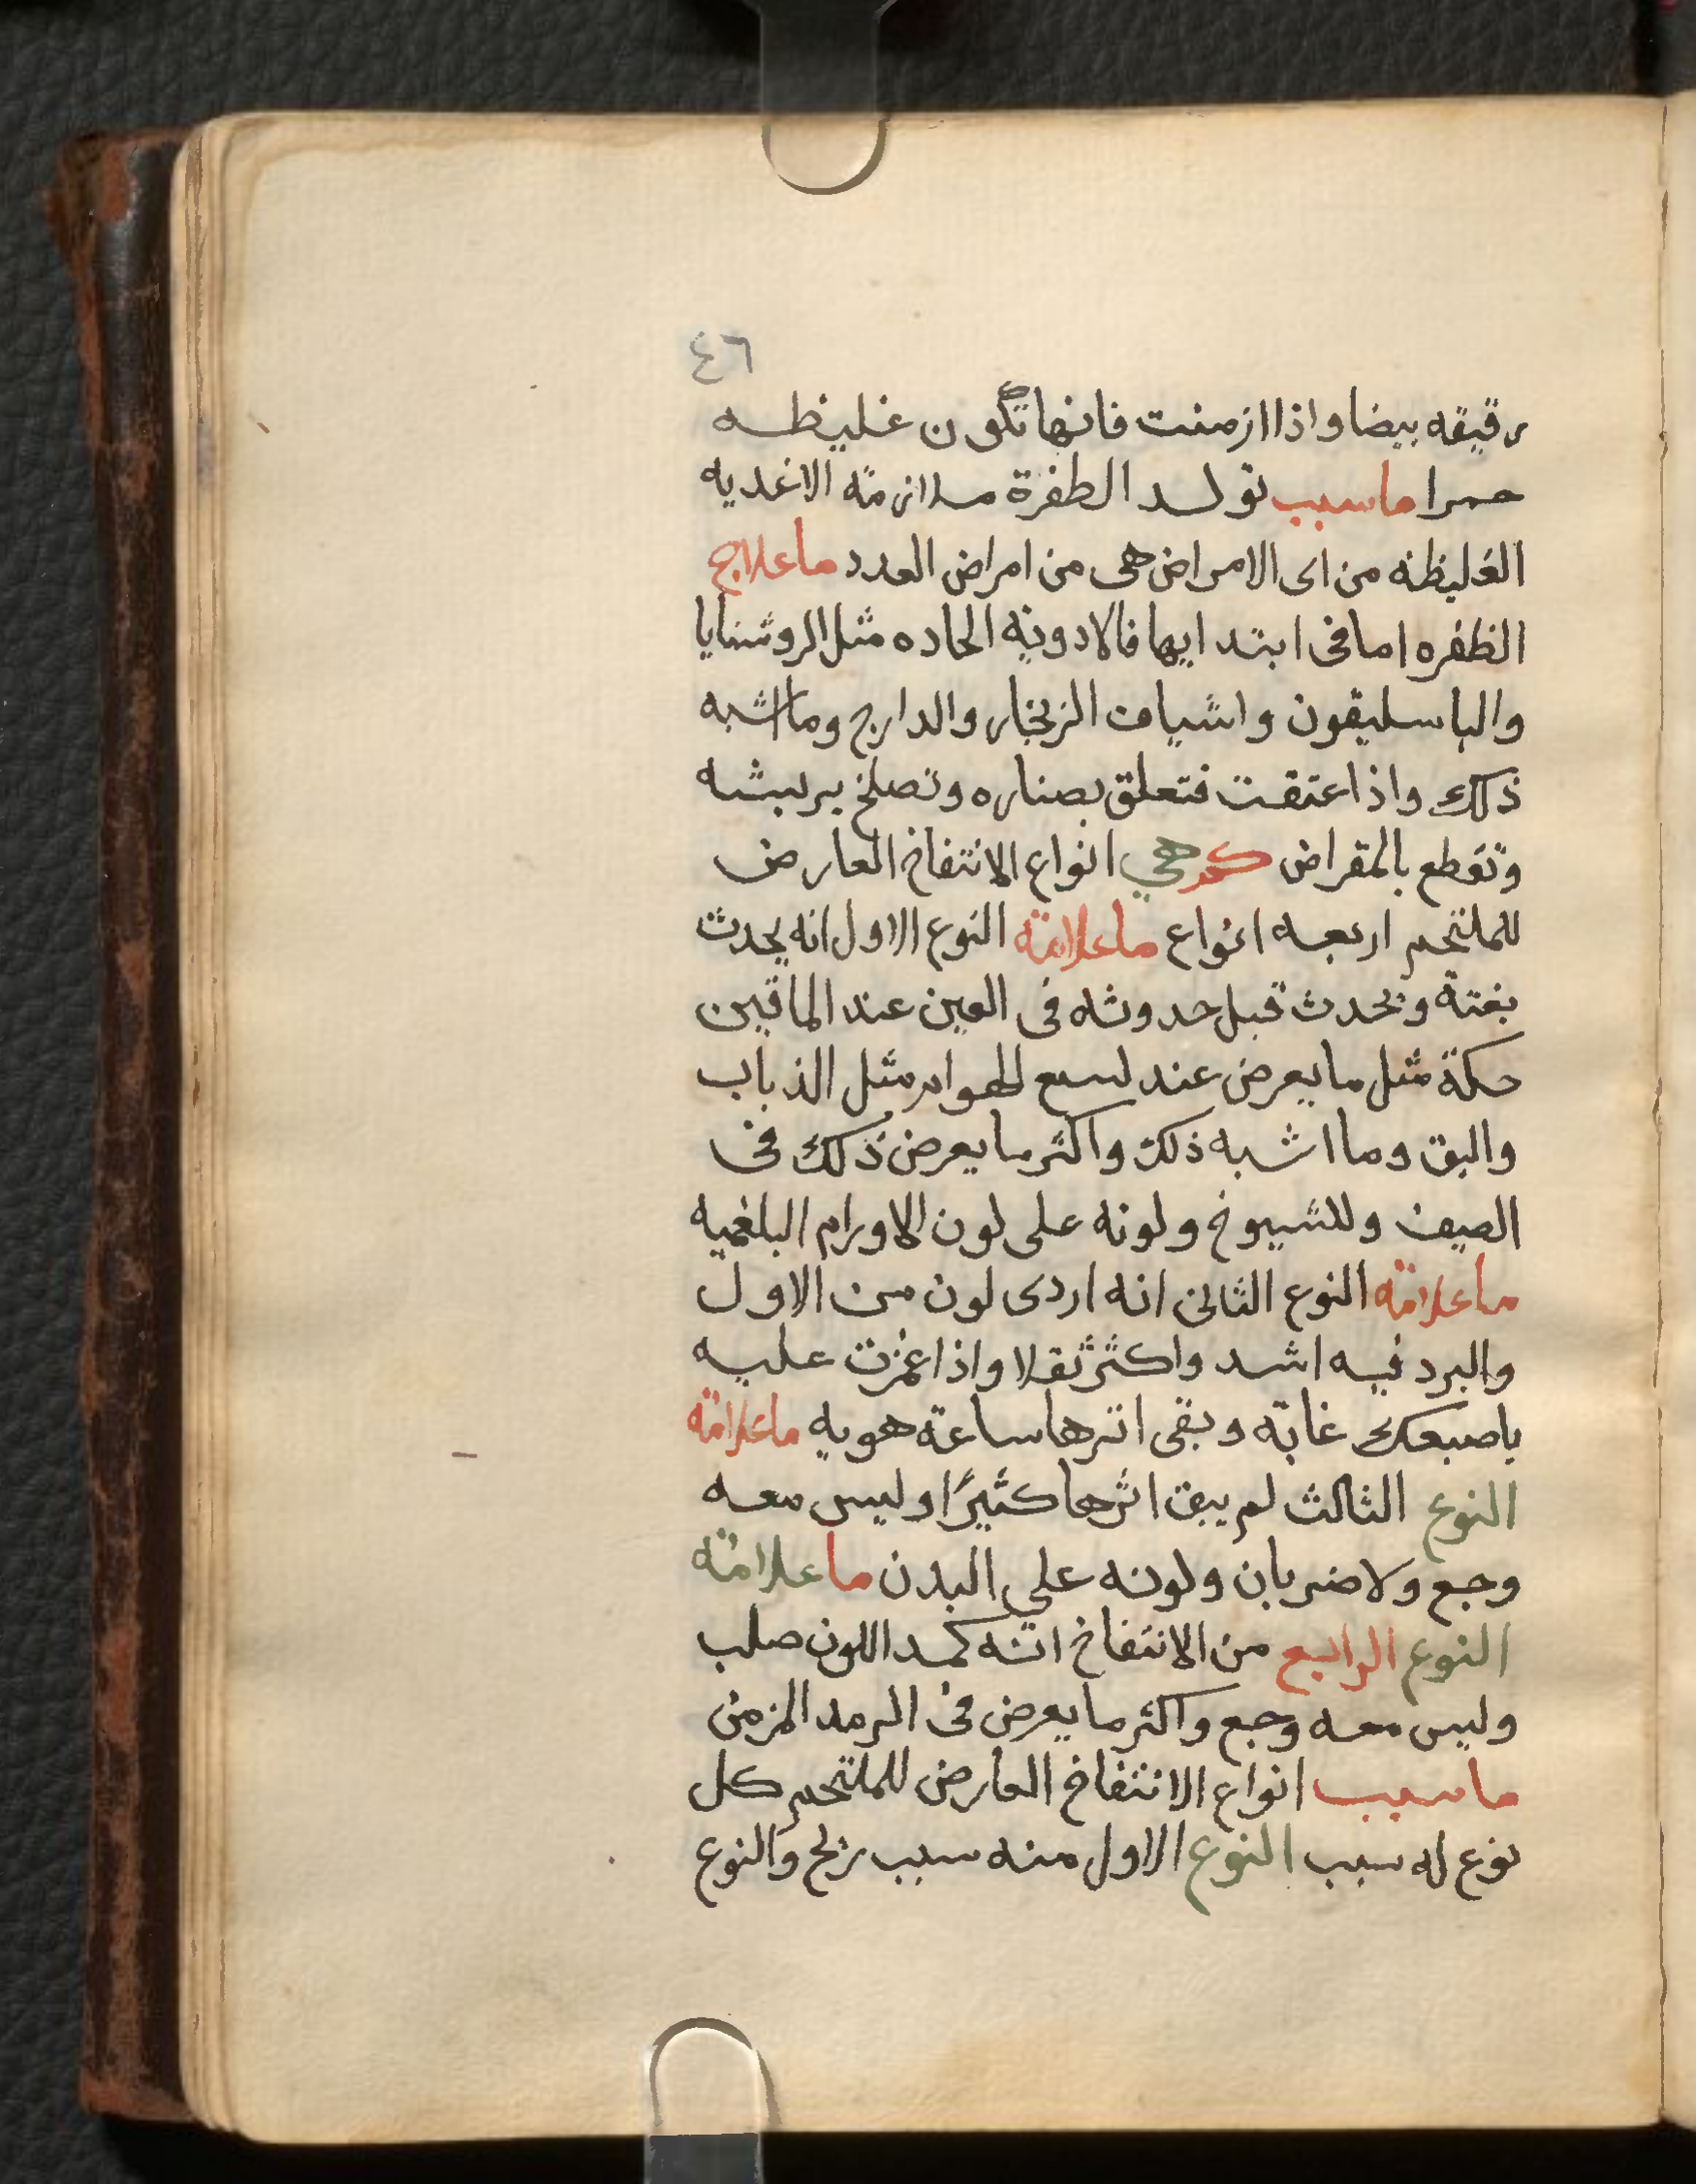 ٤٦
رقيقه بيضا واذا ازمنت فانها تكون غليظه
حمرا ماسبب تولد الطفرة ملازمة الاغديه
الغليظه من اى الامراض هى من امراض العدد ماعلاج
الظفره اما فى ابتدايها فالادويه الحاده مثل الروشنايا
والباسليقون واشياف الزنجار والدارج وما اشبه
ذلك واذا عتقت فتعلق بصناره وتصلخ بريشه
وتقطع بالمقراض كم هي انواع الانتفاخ العارض
للملتحم اربعه انواع ماعلامة النوع الاول انه يحدث
بغتة ويحدث قبل حدوثه فى العين عند الماقين
حكة مثل ما يعرض عند لسع الهوام مثل الذباب
والبق وما اشبه ذلك واكثر ما يعرض ذلك فى
الصيف وللشيوخ ولونه على لون الاورام البلغميه
ماعلامة النوع الثانى انه اردى لون من الاول
والبرد فيه اشد واكثر ثقلا واذا غمزت عليه
باصبعك غابة وبقى اثرها ساعة هويه ماعلامة
النوع الثالث لم يبق اثرها كثيرًا وليس معه
وجع ولا ضربان ولونه علي البدن ماعلامة
النوع الرابع من الانتفاخ انه كمد اللون صلب
وليس معه وجع واكثر ما يعرض فى الرمد المزمن
ماسبب انواع الانتفاخ العارض للملتحم كل
نوع له سبب النوع الاول منه سبب ريح والنوع